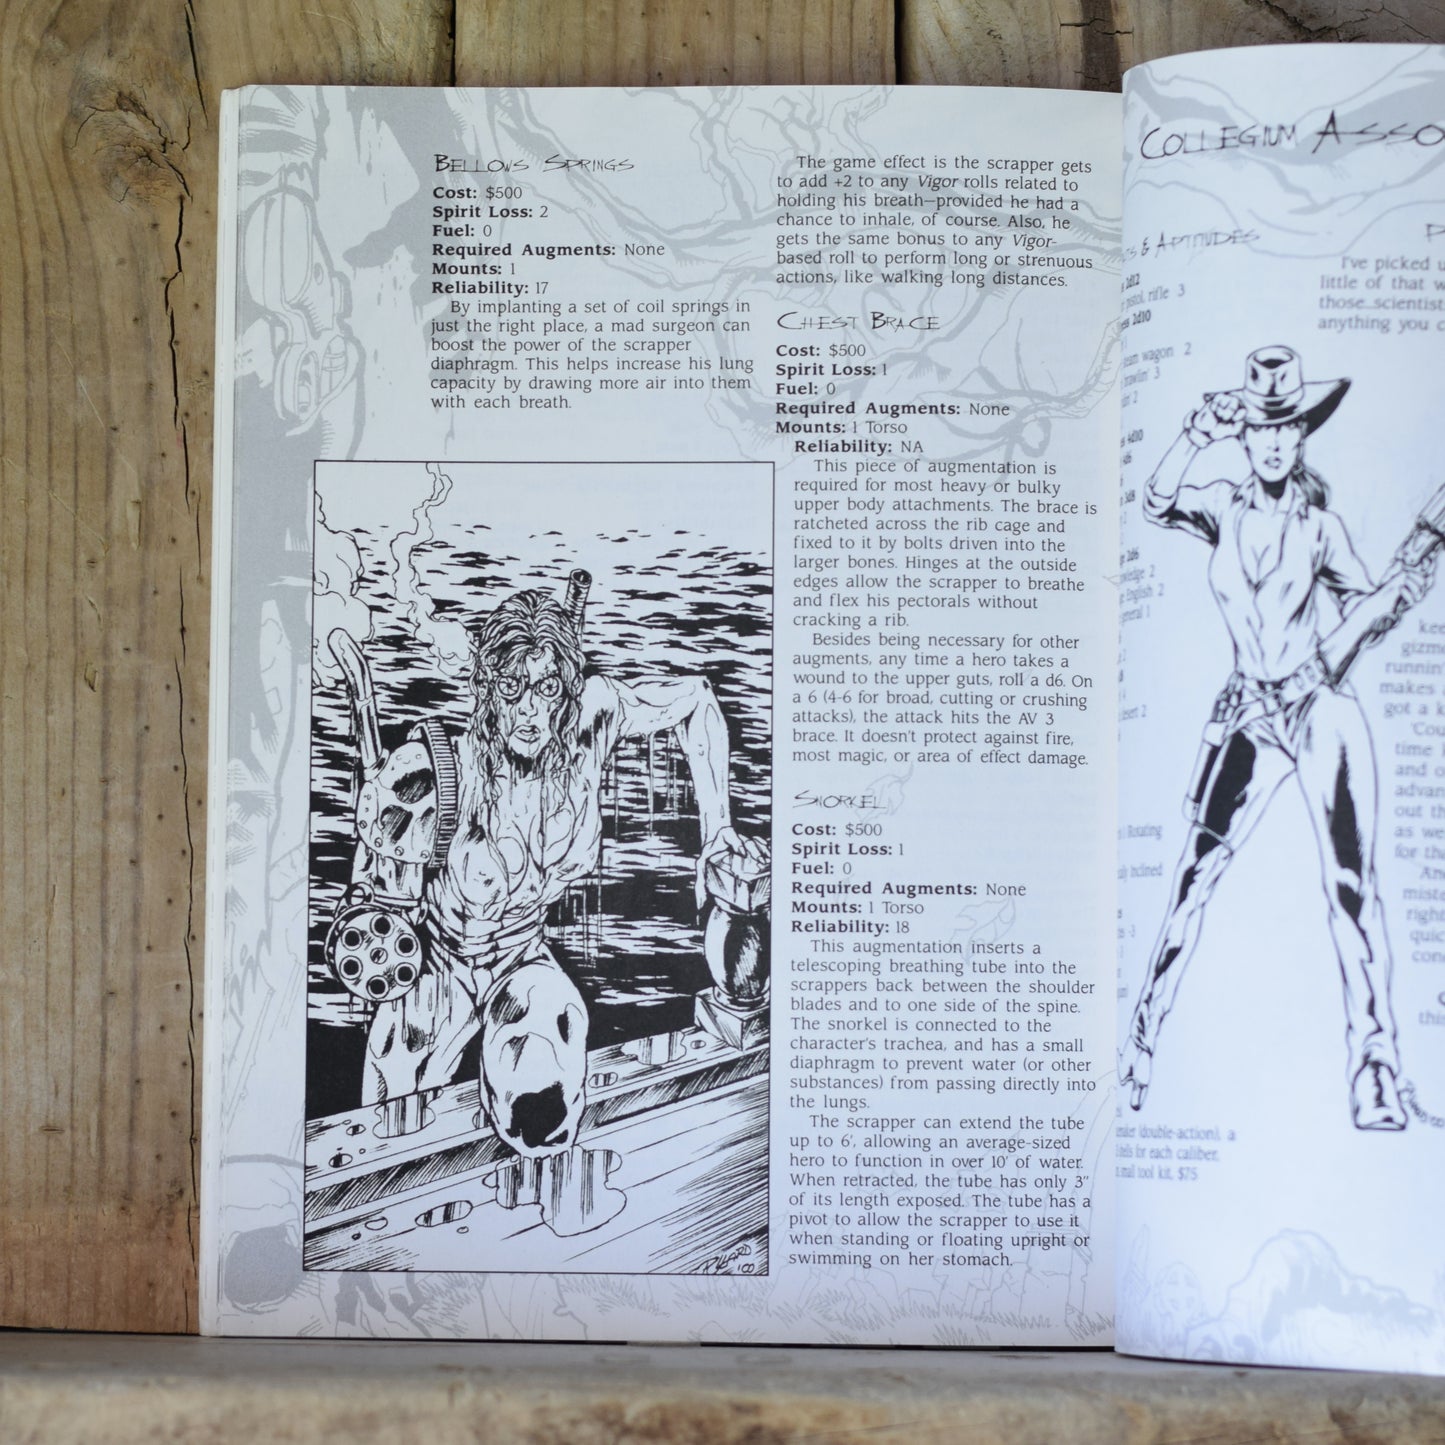 BELLOWS SPRINGS
Cost: $500
Spirit Loss: 2
Fuel: 0
Required Augments: None
Mounts: 1
Reliability: 17
By implanting a set of coil springs in
just the right place, a mad surgeon can
boost the power of the scrapper
diaphragm. This helps increase his lung
capacity by drawing more air into them
with each breath.
RYBARD
'00
The game effect is the scrapper gets
to add +2 to any Vigor rolls related to
holding his breath—provided he had a
chance to inhale, of course. Also, he
gets the same bonus to any Vigor-
based roll to perform long or strenuous
actions, like walking long distances.
CHEST BRACE
Cost: $500
Spirit Loss: 1
Fuel: 0
Required Augments: None
Mounts: 1 Torso
Reliability: NA
This piece of augmentation is
required for most heavy or bulky
upper body attachments. The brace is
ratcheted across the rib cage and
fixed to it by bolts driven into the
larger bones. Hinges at the outside
edges allow the scrapper to breathe
and flex his pectorals without
cracking a rib.
Besides being necessary for other
augments, any time a hero takes a
wound to the upper guts, roll a d6. On
a 6 (4-6 for broad, cutting or crushing
attacks), the attack hits the AV 3
brace. It doesn't protect against fire,
most magic, or area of effect damage.
SNORKEL
Cost: $500
Spirit Loss: 1
Fuel: 0
Required Augments: None
Mounts: 1 Torso
Reliability: 18
This augmentation inserts a
telescoping breathing tube into the
scrappers back between the shoulder
blades and to one side of the spine.
The snorkel is connected to the
character's trachea, and has a small
diaphragm to prevent water (or other
substances) from passing directly into
the lungs.
The scrapper can extend the tube
up to 6', allowing an average-sized
hero to function in over 10' of water.
When retracted, the tube has only 3"
of its length exposed. The tube has a
pivot to allow the scrapper to use it
when standing or floating upright or
swimming on her stomach.
COLLEGIUM ASSO
& APTITUDES
2d12
pistol, rifle 3
2d10
wagon 2
brawlin' 3
2
4d10
4d6
3d8
2d6
2
English 2
general 1
desert 2
Rotating
Inclined
-3
(double-action), a
for each caliber,
small tool kit, $75
I've picked u
little of that w
those...scientist
anything you c
kee
gizm
runnin'
makes
got a k
'Cou
time
and o
advan
out th
as we
for th
An
mist
righ
quic
con
this